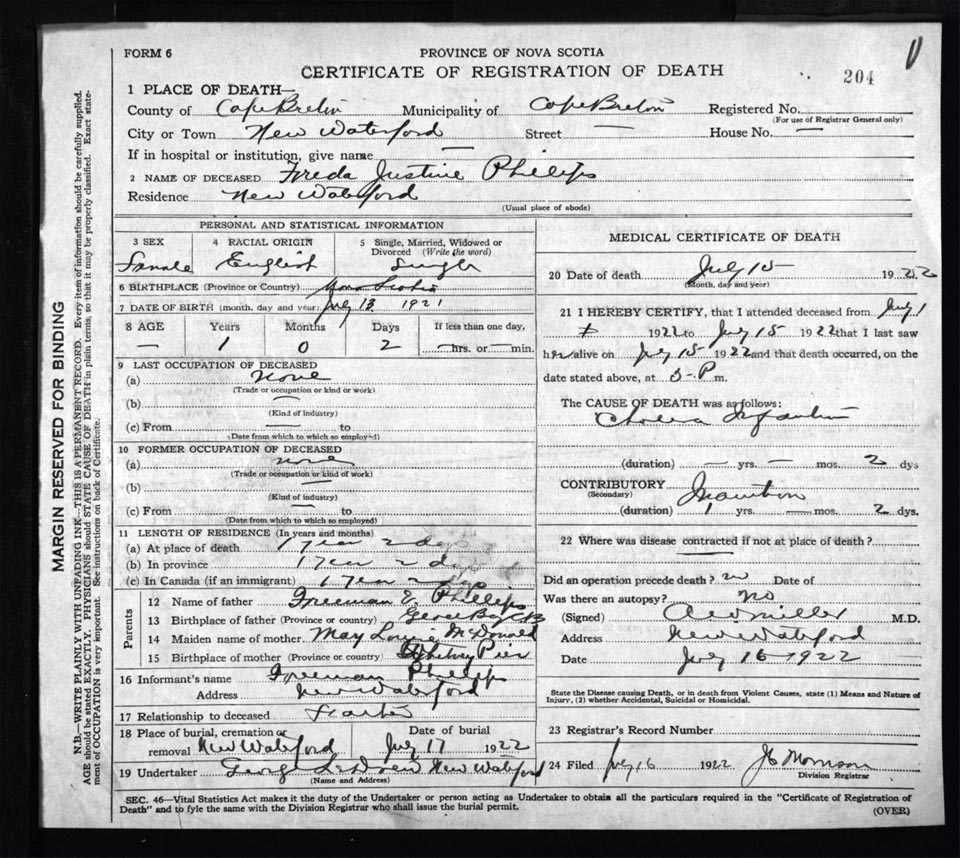 FORM 6
PROVINCE OF NOVA SCOTIA
CERTIFICATE OF REGISTRATION OF DEATH
204
1 PLACE OF DEATH—
County of Cape Breton Municipality of Cape Breton Registered No.
(For use of Registrar General only)
City or Town New Waterford Street — House No. —
If in hospital or institution, give name —
2 NAME OF DECEASED Freda Justine Phillips
Residence New Waterford
(Usual place of abode)
MARGIN RESERVED FOR BINDING
N.B.—WRITE PLAINLY WITH UNFADING INK—THIS IS A PERMANENT RECORD. Every item of information should be carefully supplied.
AGE should be stated EXACTLY. PHYSICIANS should STATE CAUSE OF DEATH in plain terms, so that it may be properly classified. Exact state-
ment of OCCUPATION is very important. See instructions on back of Certificate.
PERSONAL AND STATISTICAL INFORMATION
3 SEX 4 RACIAL ORIGIN 5 Single, Married, Widowed or
Divorced (Write the word)
Female English Single
6 BIRTHPLACE (Province or Country) Nova Scotia
7 DATE OF BIRTH (month, day and year) July 13 1921
8 AGE Years Months Days If less than one day,
— 1 0 2 —hrs. or —min.
9 LAST OCCUPATION OF DECEASED
(a) none
(Trade or occupation or kind or work)
(b) —
(Kind of industry)
(c) From — to
(Date from which to which so employed)
10 FORMER OCCUPATION OF DECEASED
(a) none
(Trade or occupation or kind of work)
(b) —
(Kind of industry)
(c) From — to
(Date from which to which so employed)
11 LENGTH OF RESIDENCE (In years and months)
(a) At place of death 1 year 2 days
(b) In province 1 year 2 days
(c) In Canada (if an immigrant) 1 year 2 days
Parents
12 Name of father Freeman E. Phillips
13 Birthplace of father (Province or country) Glace Bay C B
14 Maiden name of mother May Louise McDonald
15 Birthplace of mother (Province or country) Whitney Pier
16 Informant's name Freeman Phillips
Address New Waterford
17 Relationship to deceased Father
18 Place of burial, cremation or Date of burial
removal New Waterford July 17 1922
19 Undertaker George New Waterford
(Name and Address)
MEDICAL CERTIFICATE OF DEATH
20 Date of death July 15 1922
(Month, day and year)
21 I HEREBY CERTIFY, that I attended deceased from July 1
1922 to July 15 1922 that I last saw
her alive on July 15 1922 and that death occurred, on the
date stated above, at 5 P m.
The CAUSE OF DEATH was as follows:
Cholera Infantum
(duration) — yrs. — mos. 2 dys
CONTRIBUTORY Inanition
(Secondary)
(duration) yrs. — mos. 2 dys.
22 Where was disease contracted if not at place of death?
—
Did an operation precede death? no Date of
Was there an autopsy? no
(Signed) Miller M.D.
Address New Waterford
Date July 16 1922
State the Disease causing Death, or in death from Violent Causes, state (1) Means and Nature of
Injury, (2) whether Accidental, Suicidal or Homicidal.
23 Registrar's Record Number
24 Filed July 16 1922 Morrison
Division Registrar
SEC. 46—Vital Statistics Act makes it the duty of the Undertaker or person acting as Undertaker to obtain all the particulars required in the "Certificate of Registration of
Death" and to fyle the same with the Division Registrar who shall issue the burial permit.
(OVER)